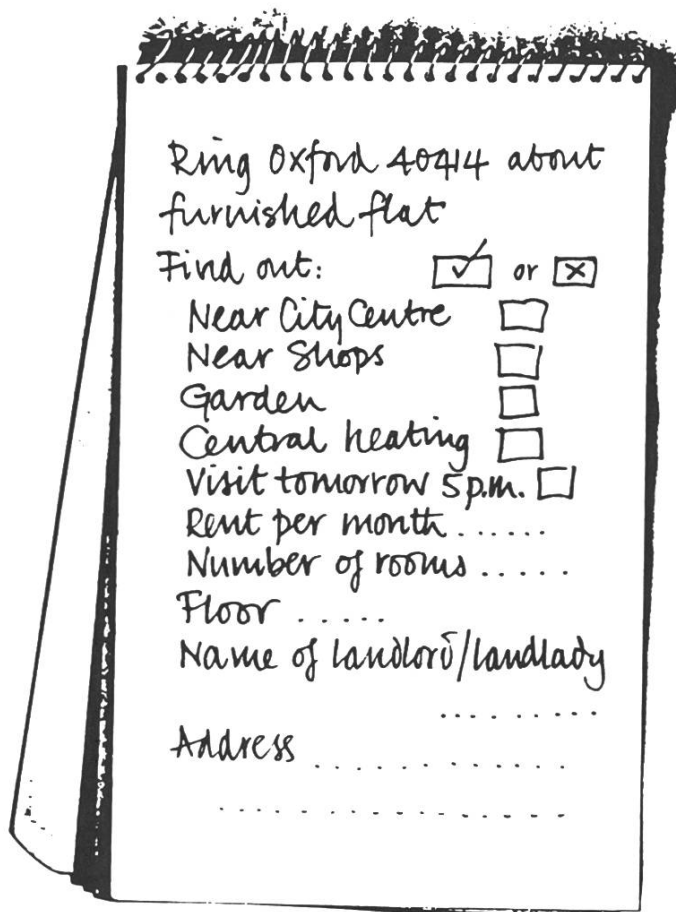 Ring Oxford 40414 about
furnished flat
Find out: ✓ or ×
Near City Centre
Near Shops
Garden
Central heating
Visit tomorrow 5 p.m.
Rent per month ......
Number of rooms .....
Floor .....
Name of landlord/landlady
.........
Address ............
...............